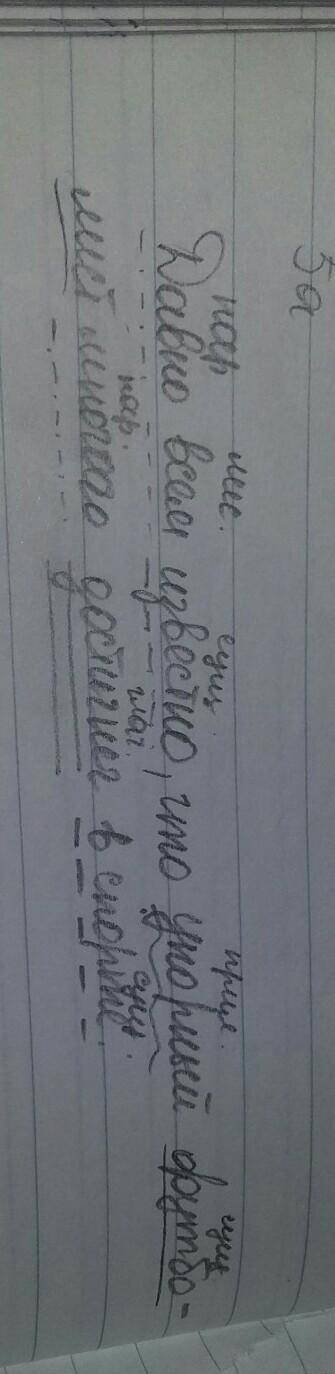 5я
нар мис. сущ. прил. сущ
Давно всем известно, что упорный футбо-
нар. глаг. сущ.
лист многого достигнет в спорте.